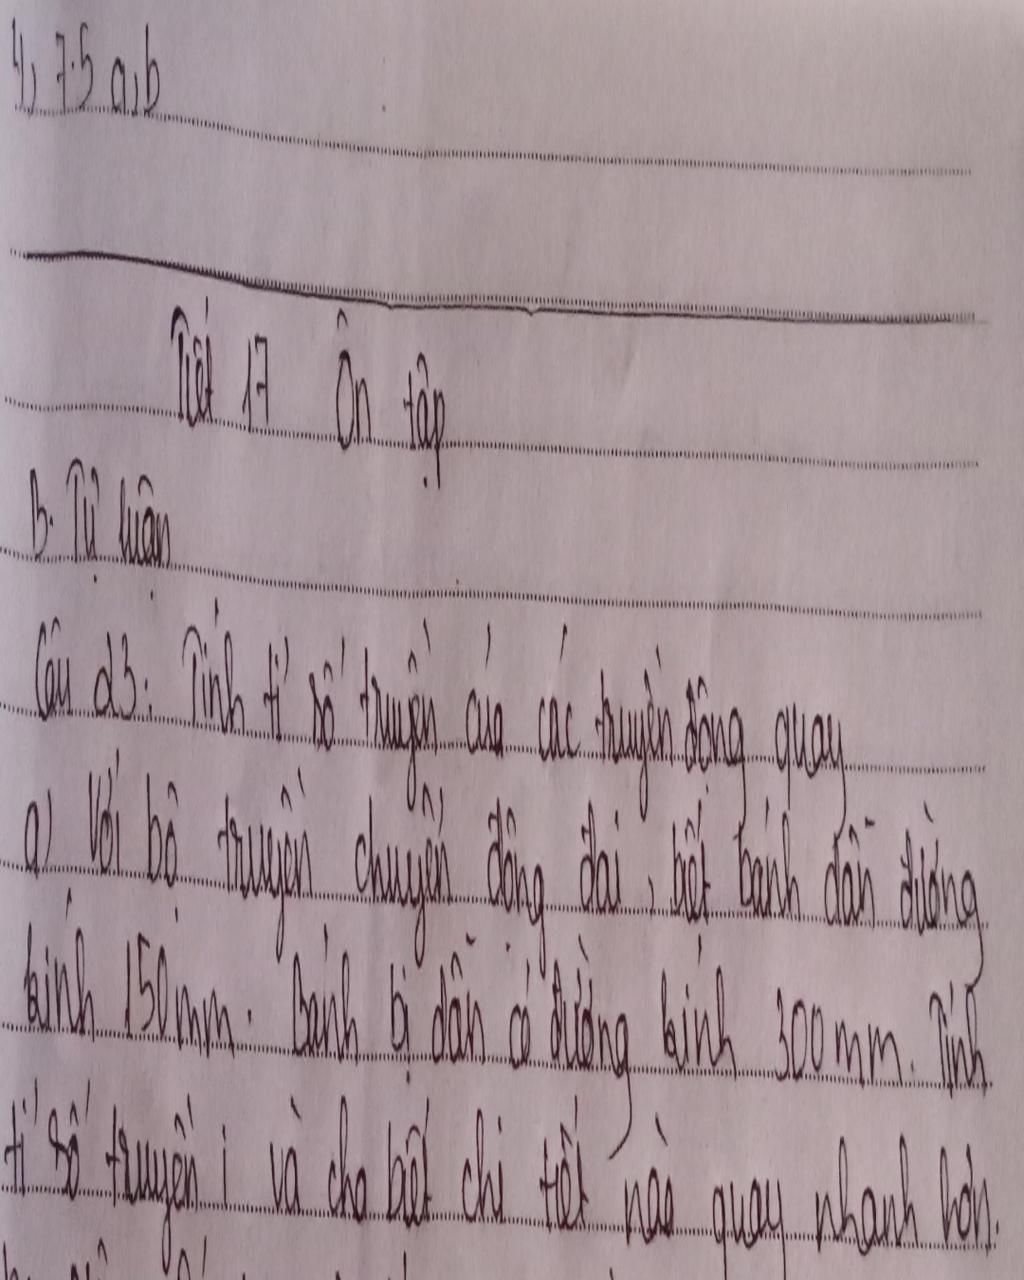 4, 7.5 a,b
Tiết 17 Ôn tập
B. Tự luận
Câu d3: Tính tỉ số truyền của các truyền động quay
a) Với bộ truyền chuyển động đai, biết bánh dẫn đường
kính 150mm. Bánh bị dẫn có đường kính 300mm. Tính
tỉ số truyền i và cho biết chi tiết nào quay nhanh hơn.